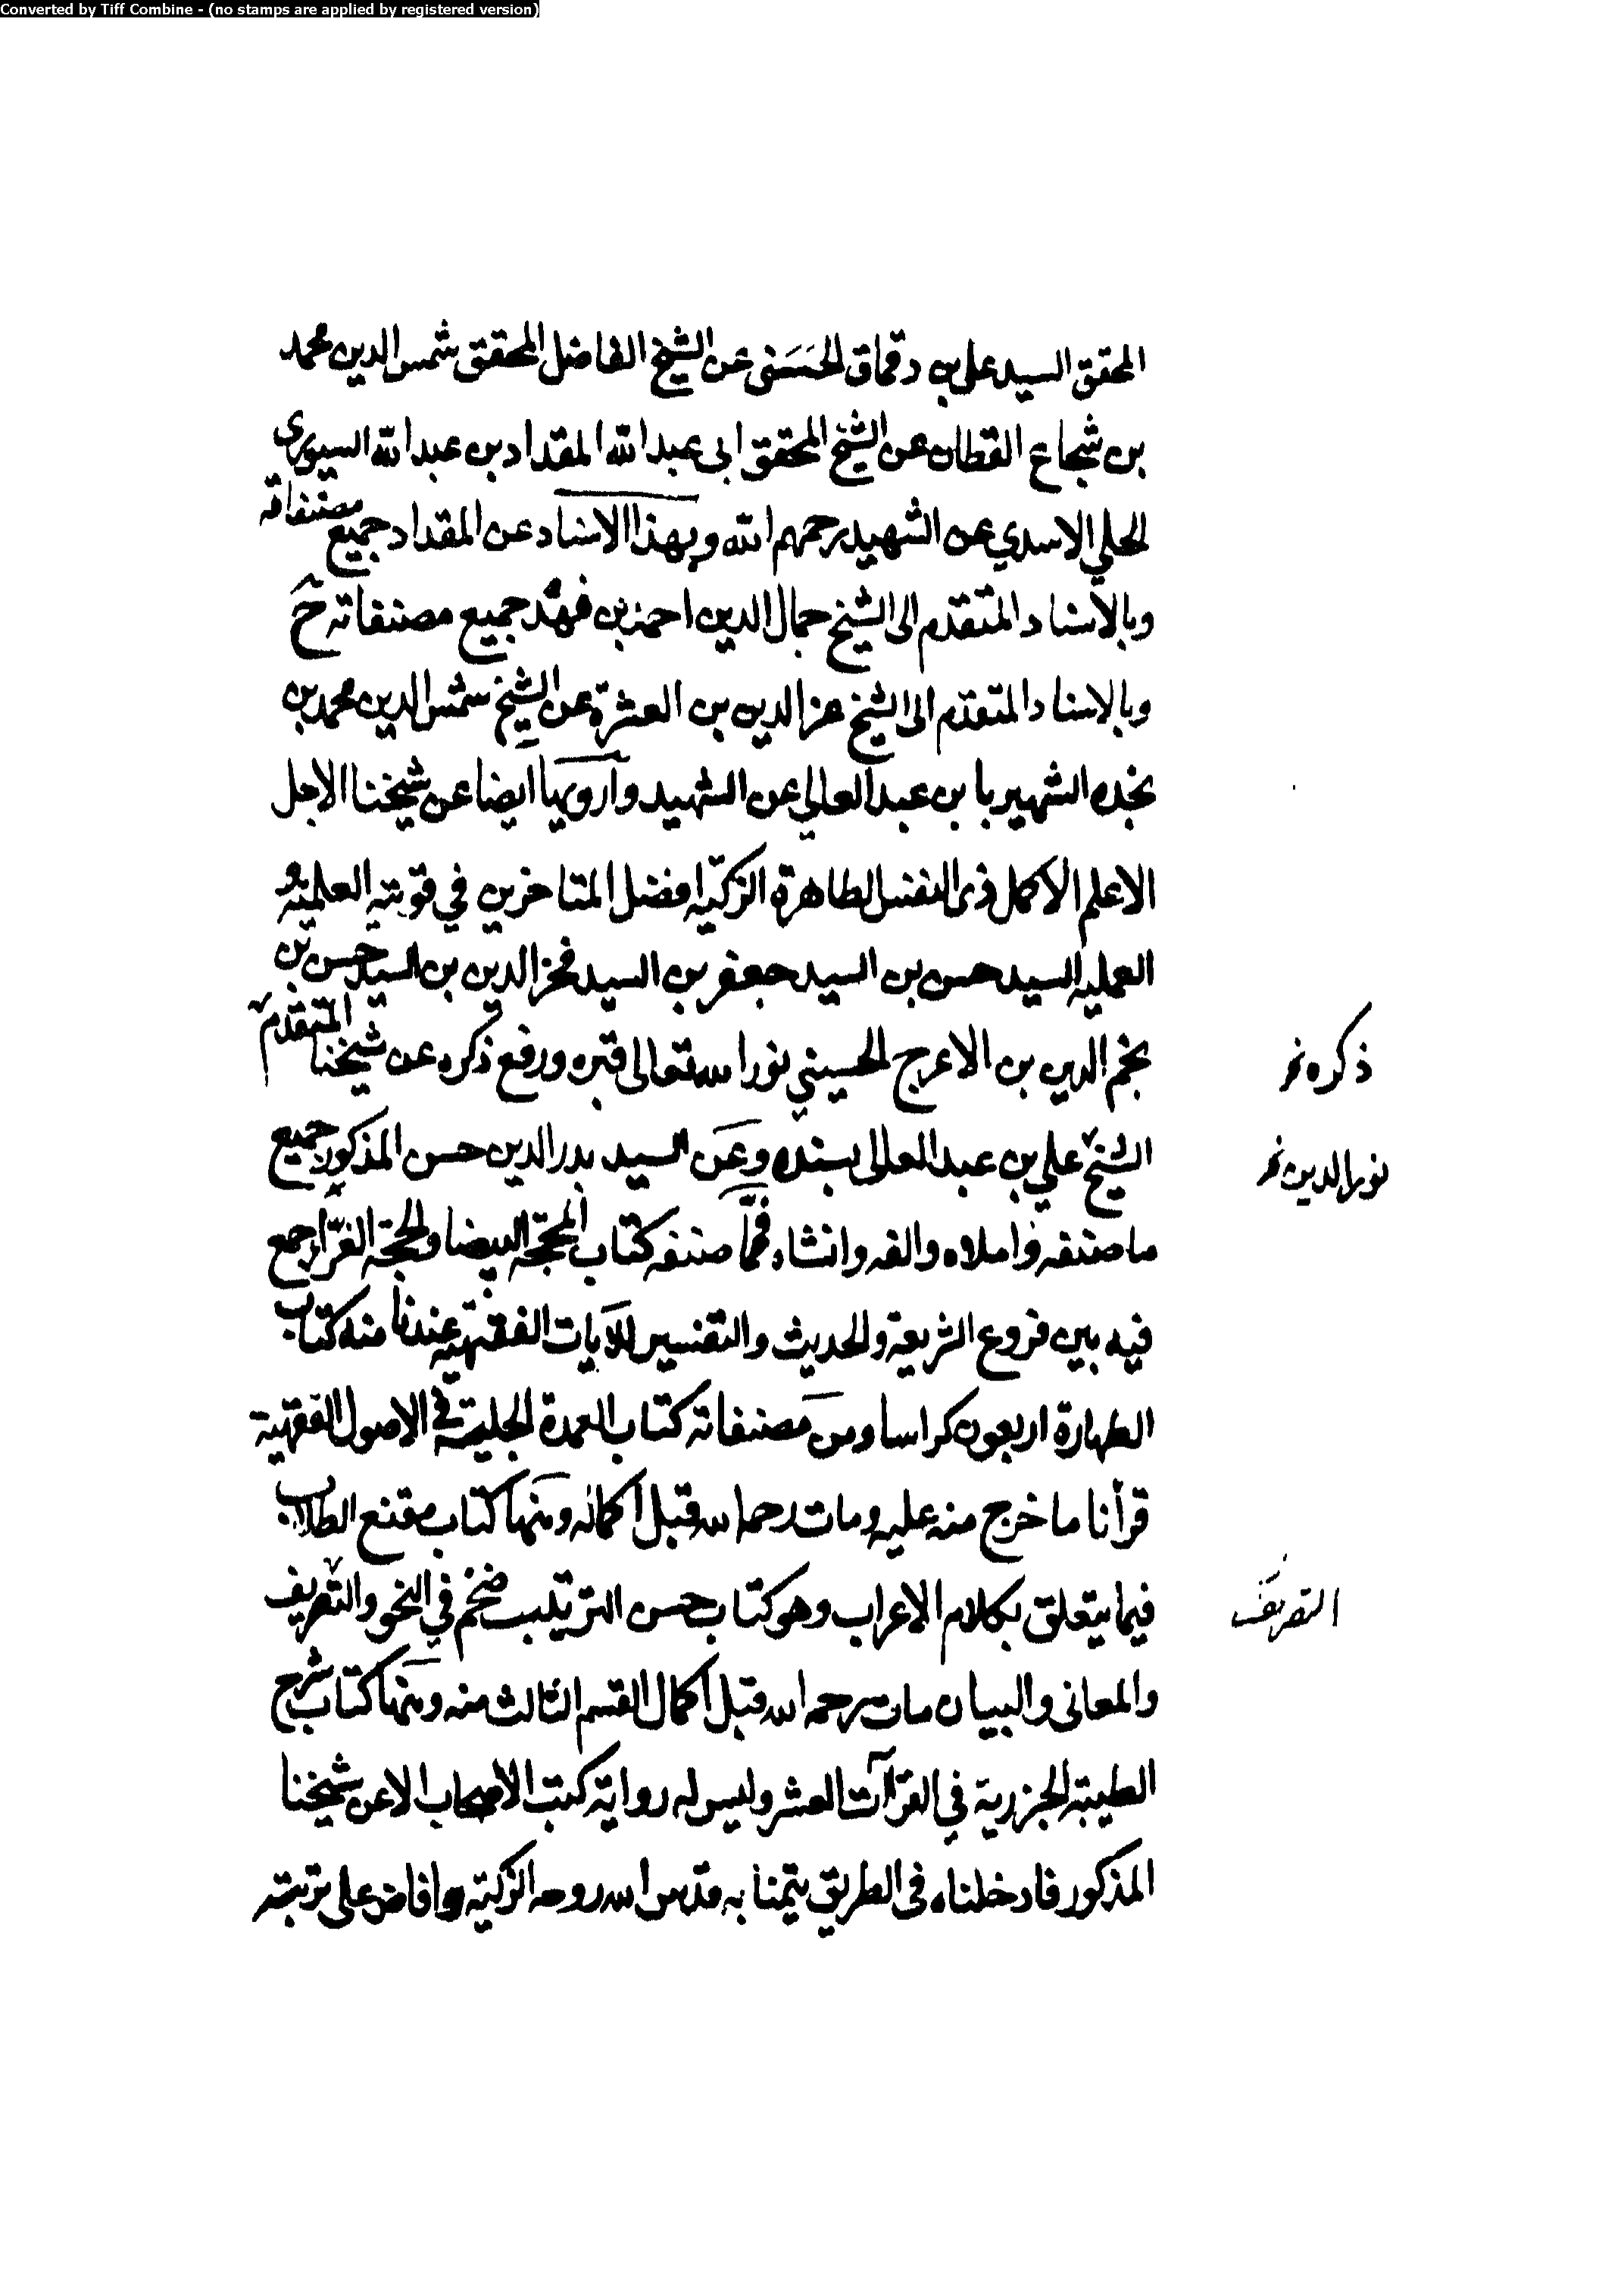 Converted by Tiff Combine - (no stamps are applied by registered version)
المحقق السيد علي بن دقماق الحَسَنى عن الشيخ الفاضل المحقق شمس الدين محمد
بن شجاع القطان عن الشيخ المحقق ابى عبد الله المقداد بن عبد الله السيوري
الحلي الاسدي عن الشهيد رحمهم الله وبهذا الاسناد عن المقداد جميع مصنفاته
وبالاسناد المتقدم الى الشيخ جمال الدين احمد بن فهد جميع مصنفاته ح
وبالاسناد المتقدم الى الشيخ عز الدين بن العشرة عن الشيخ شمس الدين محمد بن
نجده الشهير بابن عبد العالي عن الشهيد وارويها ايضا عن شيخنا الاجل
الاعلم الاكمل ذى النفس الطاهرة الزكيه افضل المتاخرين في قوتيه العلميه و
العمليه السيد حسن بن السيد جعفر بن السيد فخر الدين بن السيد حسن بن
نجم الدين بن الاعرج الحسيني نور الله تعالى قبره ورفع ذكره عن شيخنا المتقدم
ذكره نخ
الشيخ علي بن عبد العالى بسنده وعن السيد بدر الدين حسن المذكور جميع
نور الدين نخ
ما صنفه واملاه والفه وانشاه فمما صنفه كتاب المحجة البيضا والحجة الغرّا جمع
فيه بين فروع الشريعة والحديث والتفسير للآيات الفقهيه عندنا منه كتاب
الطهارة اربعون كراسا ومن مصنفاته كتاب العمدة الجلية في الاصول الفقهية
قرأنا ما خرج منه عليه ومات رحمه الله قبل اكماله ومنها كتاب مقنع الطلاب
فيما يتعلق بكلام الاعراب وهو كتاب حسن الترتيب ضخم في النحو والتصريف
التصريف
والمعانى والبيان مات رحمه الله قبل اكمال القسم الثالث منه ومنها كتاب شرح
الطيبة الجزرية في القرآات العشر وليس له رواية كتب الاصحاب الا عن شيخنا
المذكور فادخلناه فى الطريق تيمنا به قدس الله روحه الزكية وافاض على تربته